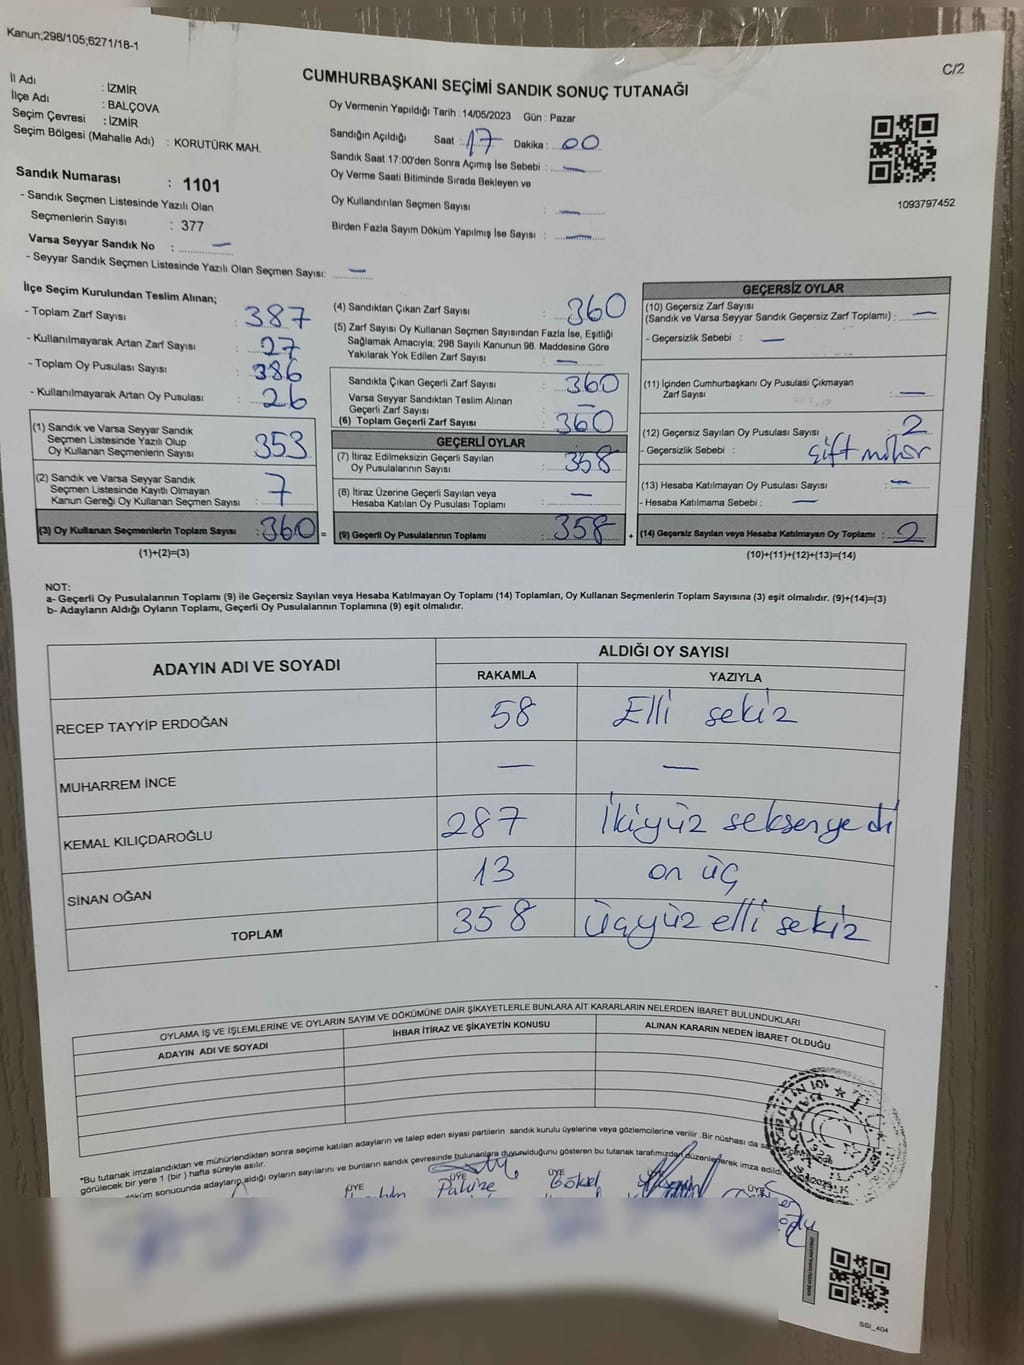 Kanun;298/105;6271/18-1
C/2
CUMHURBAŞKANI SEÇİMİ SANDIK SONUÇ TUTANAĞI
İl Adı : İZMİR
İlçe Adı : BALÇOVA
Seçim Çevresi : İZMİR
Seçim Bölgesi (Mahalle Adı) : KORUTÜRK MAH.
Sandık Numarası : 1101
- Sandık Seçmen Listesinde Yazılı Olan
Seçmenlerin Sayısı : 377
Varsa Seyyar Sandık No : —
- Seyyar Sandık Seçmen Listesinde Yazılı Olan Seçmen Sayısı: —
Oy Vermenin Yapıldığı Tarih : 14/05/2023 Gün : Pazar
Sandığın Açıldığı Saat : 17 Dakika : 00
Sandık Saat 17:00'den Sonra Açımış İse Sebebi : —
Oy Verme Saati Bitiminde Sırada Bekleyen ve
Oy Kullandırılan Seçmen Sayısı : —
Birden Fazla Sayım Döküm Yapılmış İse Sayısı : —
1093797452
İlçe Seçim Kurulundan Teslim Alınan;
- Toplam Zarf Sayısı : 387
- Kullanılmayarak Artan Zarf Sayısı : 27
- Toplam Oy Pusulası Sayısı : 386
- Kullanılmayarak Artan Oy Pusulası : 26
(1) Sandık ve Varsa Seyyar Sandık
Seçmen Listesinde Yazılı Olup
Oy Kullanan Seçmenlerin Sayısı : 353
(2) Sandık ve Varsa Seyyar Sandık
Seçmen Listesinde Kayıtlı Olmayan
Kanun Gereği Oy Kullanan Seçmen Sayısı : 7
(3) Oy Kullanan Seçmenlerin Toplam Sayısı : 360 =
(1)+(2)=(3)
(4) Sandıktan Çıkan Zarf Sayısı : 360
(5) Zarf Sayısı Oy Kullanan Seçmen Sayısından Fazla İse, Eşitliği
Sağlamak Amacıyla; 298 Sayılı Kanunun 98. Maddesine Göre
Yakılarak Yok Edilen Zarf Sayısı : —
Sandıkta Çıkan Geçerli Zarf Sayısı : 360
Varsa Seyyar Sandıktan Teslim Alınan
Geçerli Zarf Sayısı : —
(6) Toplam Geçerli Zarf Sayısı : 360
GEÇERLİ OYLAR
(7) İtiraz Edilmeksizin Geçerli Sayılan
Oy Pusulalarının Sayısı : 358
(8) İtiraz Üzerine Geçerli Sayılan veya
Hesaba Katılan Oy Pusulası Toplamı : —
(9) Geçerli Oy Pusulalarının Toplamı : 358 +
GEÇERSİZ OYLAR
(10) Geçersiz Zarf Sayısı
(Sandık ve Varsa Seyyar Sandık Geçersiz Zarf Toplamı) : —
- Geçersizlik Sebebi : —
(11) İçinden Cumhurbaşkanı Oy Pusulası Çıkmayan
Zarf Sayısı : —
(12) Geçersiz Sayılan Oy Pusulası Sayısı : 2
- Geçersizlik Sebebi : çift mühür
(13) Hesaba Katılmayan Oy Pusulası Sayısı : —
- Hesaba Katılmama Sebebi : —
(14) Geçersiz Sayılan veya Hesaba Katılmayan Oy Toplamı : 2
(10)+(11)+(12)+(13)=(14)
NOT:
a- Geçerli Oy Pusulalarının Toplamı (9) ile Geçersiz Sayılan veya Hesaba Katılmayan Oy Toplamı (14) Toplamları, Oy Kullanan Seçmenlerin Toplam Sayısına (3) eşit olmalıdır. (9)+(14)=(3)
b- Adayların Aldığı Oyların Toplamı, Geçerli Oy Pusulalarının Toplamına (9) eşit olmalıdır.
ADAYIN ADI VE SOYADI ALDIĞI OY SAYISI
RAKAMLA YAZIYLA
RECEP TAYYİP ERDOĞAN 58 Elli sekiz
MUHARREM İNCE — —
KEMAL KILIÇDAROĞLU 287 İkiyüz seksenyedi
SİNAN OĞAN 13 on üç
TOPLAM 358 Üçyüz elli sekiz
OYLAMA İŞ VE İŞLEMLERİNE VE OYLARIN SAYIM VE DÖKÜMÜNE DAİR ŞİKAYETLERLE BUNLARA AİT KARARLARIN NELERDEN İBARET BULUNDUKLARI
ADAYIN ADI VE SOYADI İHBAR İTİRAZ VE ŞİKAYETİN KONUSU ALINAN KARARIN NEDEN İBARET OLDUĞU
*Bu tutanak imzalandıktan ve mühürlendikten sonra seçime katılan adayların ve talep eden siyasi partilerin sandık kurulu üyelerine veya gözlemcilerine verilir. Bir nüshası da
görülecek bir yere 1 (bir) hafta süreyle asılır.
sonucunda adayların aldığı oyların sayılarını ve bunların sandık çevresinde bulunanlara duyurulduğunu gösteren bu tutanak tarafımızdan düzenlenerek imza edildi.
ÜYE ÜYE ÜYE ÜYE ÜYE
Göksel
SSI_404